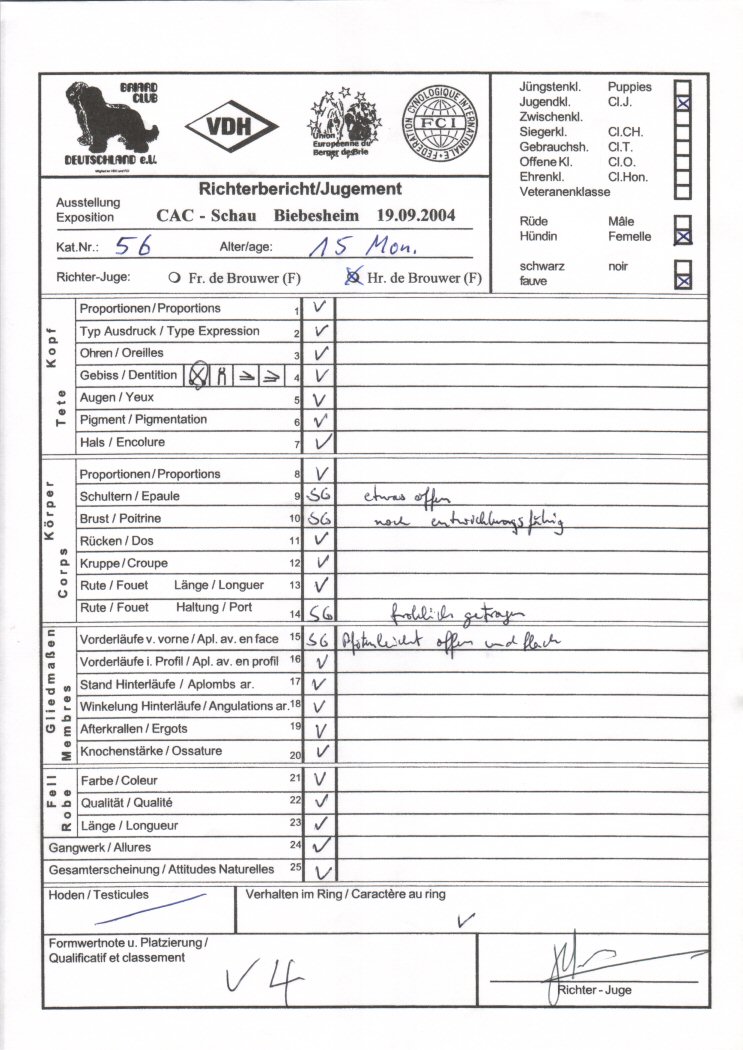 BRIARD
CLUB
DEUTSCHLAND e.V.
VDH
Union
Européenne du
Berger de Brie
FEDERATION CYNOLOGIQUE INTERNATIONALE
FCI
Jüngstenkl. Puppies
Jugendkl. Cl.J.
Zwischenkl.
Siegerkl. Cl.CH.
Gebrauchsh. Cl.T.
Offene Kl. Cl.O.
Ehrenkl. Cl.Hon.
Veteranenklasse
Rüde Mâle
Hündin Femelle
schwarz noir
fauve
Richterbericht/Jugement
Ausstellung
Exposition CAC - Schau Biebesheim 19.09.2004
Kat.Nr.: 56 Alter/age: 15 Mon.
Richter-Juge: Fr. de Brouwer (F) Hr. de Brouwer (F)
Kopf
Tete
Proportionen / Proportions 1 V
Typ Ausdruck / Type Expression 2 V
Ohren / Oreilles 3 V
Gebiss / Dentition 4 V
Augen / Yeux 5 V
Pigment / Pigmentation 6 V
Hals / Encolure 7 V
Körper
Corps
Proportionen / Proportions 8 V
Schultern / Epaule 9 SG etwas offen
Brust / Poitrine 10 SG noch entwicklungsfähig
Rücken / Dos 11 V
Kruppe / Croupe 12 V
Rute / Fouet Länge / Longuer 13 V
Rute / Fouet Haltung / Port 14 SG fröhlich getragen
Gliedmaßen
Membres
Vorderläufe v. vorne / Apl. av. en face 15 SG Pfoten leicht offen und flach
Vorderläufe i. Profil / Apl. av. en profil 16 V
Stand Hinterläufe / Aplombs ar. 17 V
Winkelung Hinterläufe / Angulations ar. 18 V
Afterkrallen / Ergots 19 V
Knochenstärke / Ossature 20 V
Fell
Robe
Farbe / Coleur 21 V
Qualität / Qualité 22 V
Länge / Longueur 23 V
Gangwerk / Allures 24 V
Gesamterscheinung / Attitudes Naturelles 25 V
Hoden / Testicules
Verhalten im Ring / Caractère au ring
V
Formwertnote u. Platzierung /
Qualificatif et classement
V 4
Richter - Juge